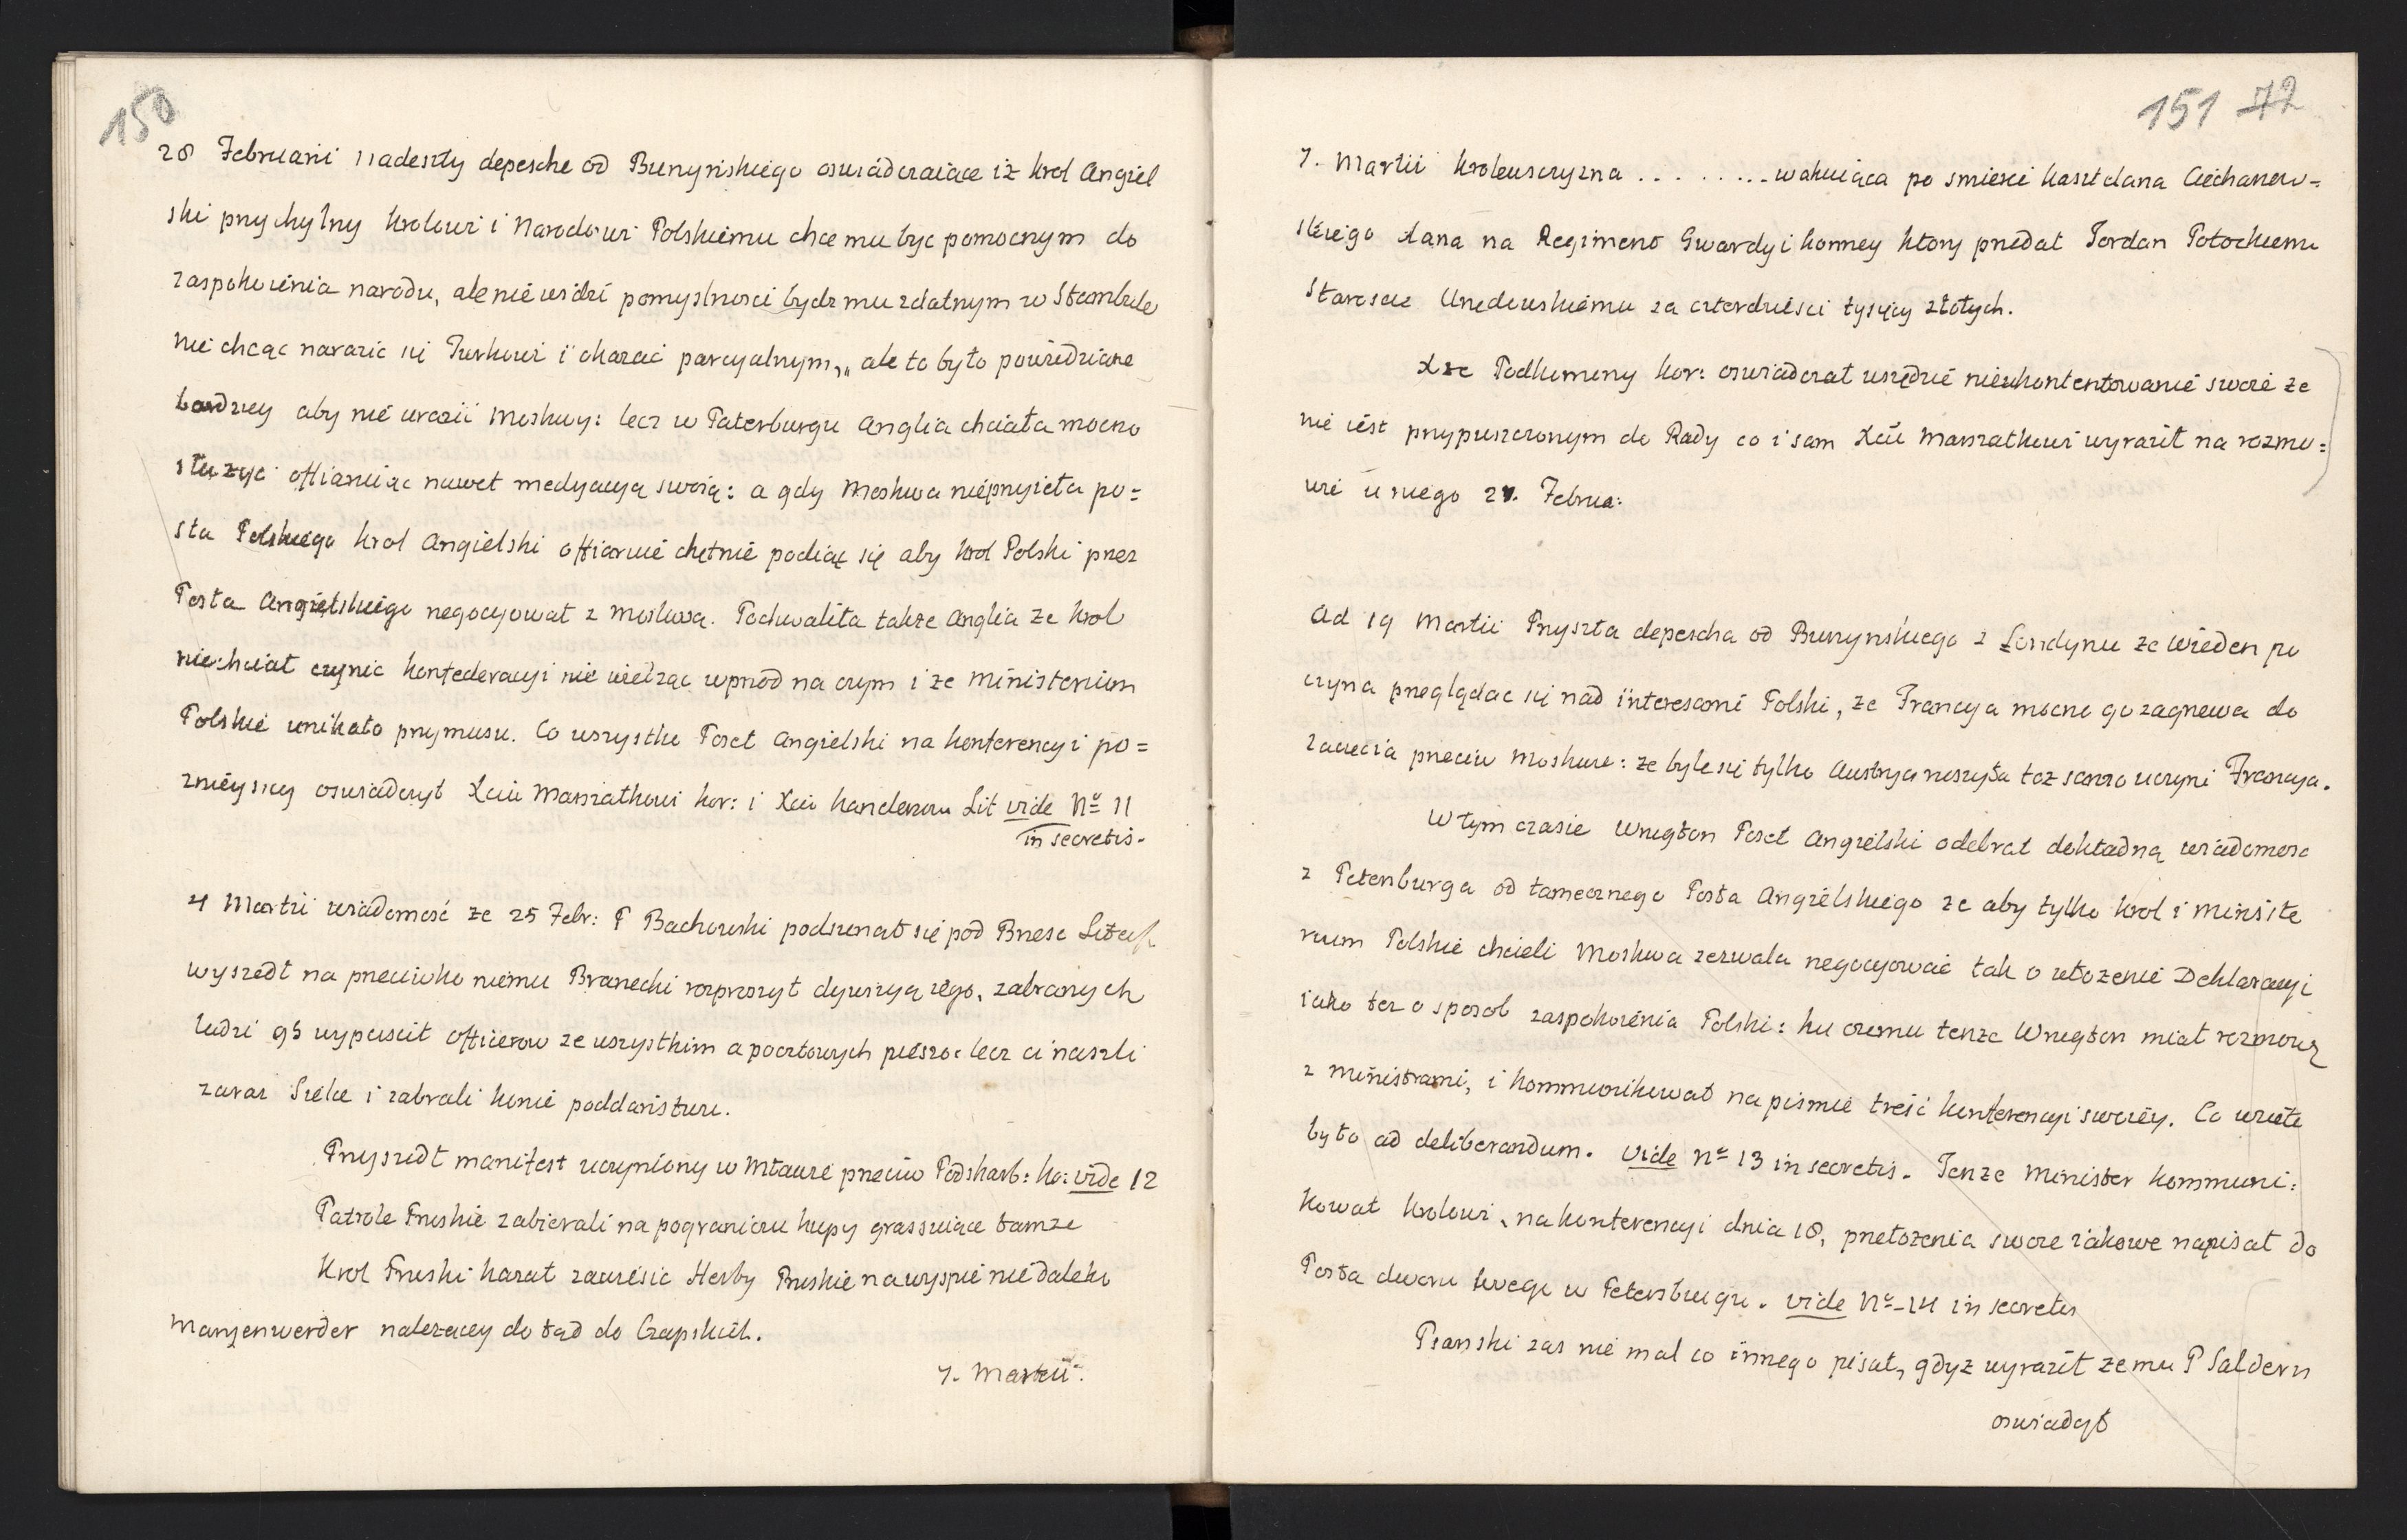 150
28 Februarii nadeszły depesche od Burzyńskiego oswiadczaiące iż krol Angiel
ski przychylny krolowi i Narodowi Polskiemu chce mu byc pomocnym do
zaspokoienia narodu, ale nie widzi pomyslnosci bydz mu zdatnym w Stambule
nie chcąc narazic się Turkowi i okazać parcyalnym,, ale to było powiedziane
bardziey aby nie urazii Moskwy: lecz w Petersburgu Anglia chciała mocno
słuzyć offiaruiąc nawet medyacyą swoią: a gdy Moskwa nieprzyieła po=
sła Polskiego krol Angielski offiaruie chętnie podiąc się aby krol Polski przez
Posła Angielskiego negocyował z Moskwą. Pochwaliła takze Anglia ze krol
niechciał czynic konfederacyi nie wiedząc wprzod na czym i ze ministerium
Polskie unikało przymusu. Co wszystko Poseł Angielski na konferencyi po=
znieyszey oswiadczył Xciu Marszałkowi kor: i Xciu kanclerzowi Lit vide No 11
in secretis.
4 Martii wiadomość ze 25 Febr: P Bachowski podsunał się pod Brzesc Litewsk
wyszedł na przeciwko niemu Branecki rozproszył dywizyą iego, zabranych
ludzi 93 wypuscił officerow ze wszystkim a pocztowych pieszo: lecz ci naszli
zaraz Sielce i zabrali konie poddaństwu.
Przyszedł manifest uczyniony w Mławie przeciw Podskarb: ko: vide 12
Patrole Pruskie zabierali na pograniczu kupy grassuiące tamze
Krol Pruski kazał zawiesic Herby Pruskie na wyspie niedaleko
Maryenwerder nalezacey do tąd do Czapskich.
7. Martii.
151 72
7. Martii krolewszczyzna . . . . . . . . wakuiąca po smierci kasztelana Ciechanow=
skiego dana na Regiment Gwardyi konney ktory przedał Jordan Potockiemu
Staroscie Urzedowskiemu za czterdziesci tysięcy złotych.
Xze Podkomorzy kor: oswiadczał wszędzie nieukontentowanie swoie ze
nie iest przypuszczonym do Rady co i sam Xciu Marszałkowi wyraził na rozmo=
wie u niego 27. Februa:
Ad 19 Martii Przyszła depescha od Burzynskiego z Londynu ze Wieden po
czyna przeglądac się nad interesami Polski, ze Francya mocno go zagrzewa do
zaiecia przeciw Moskwie: ze byle się tylko Austrya ruszyła toz samo uczyni Francya.
W tym czasie Wrugton Poseł Angielski odebrał dokładną wiadomosc
z Petersburga od tamecznego Posła Angielskiego ze aby tylko krol i Ministe
rium Polskie chcieli Moskwa zezwala negocyować tak o ułozenie Deklaracyi
iako tez o sposob zaspokoienia Polski: ku czemu tenze Wrugton miał rozmowę
z ministrami, i kommunikował na pismie treść konferencyi swoiey. Co wzięte
było ad deliberandum. Vide No 13 in secretis. Tenze Minister kommuni:
kował krolowi, na konferencyi dnia 18, przełozenia swoie iakowe napisał do
Posła dworu swego w Petersburgu. vide No 14 in secretis
Psarski zas nie mal co innego pisał, gdyz wyraził ze mu P Saldern
oswiadczył